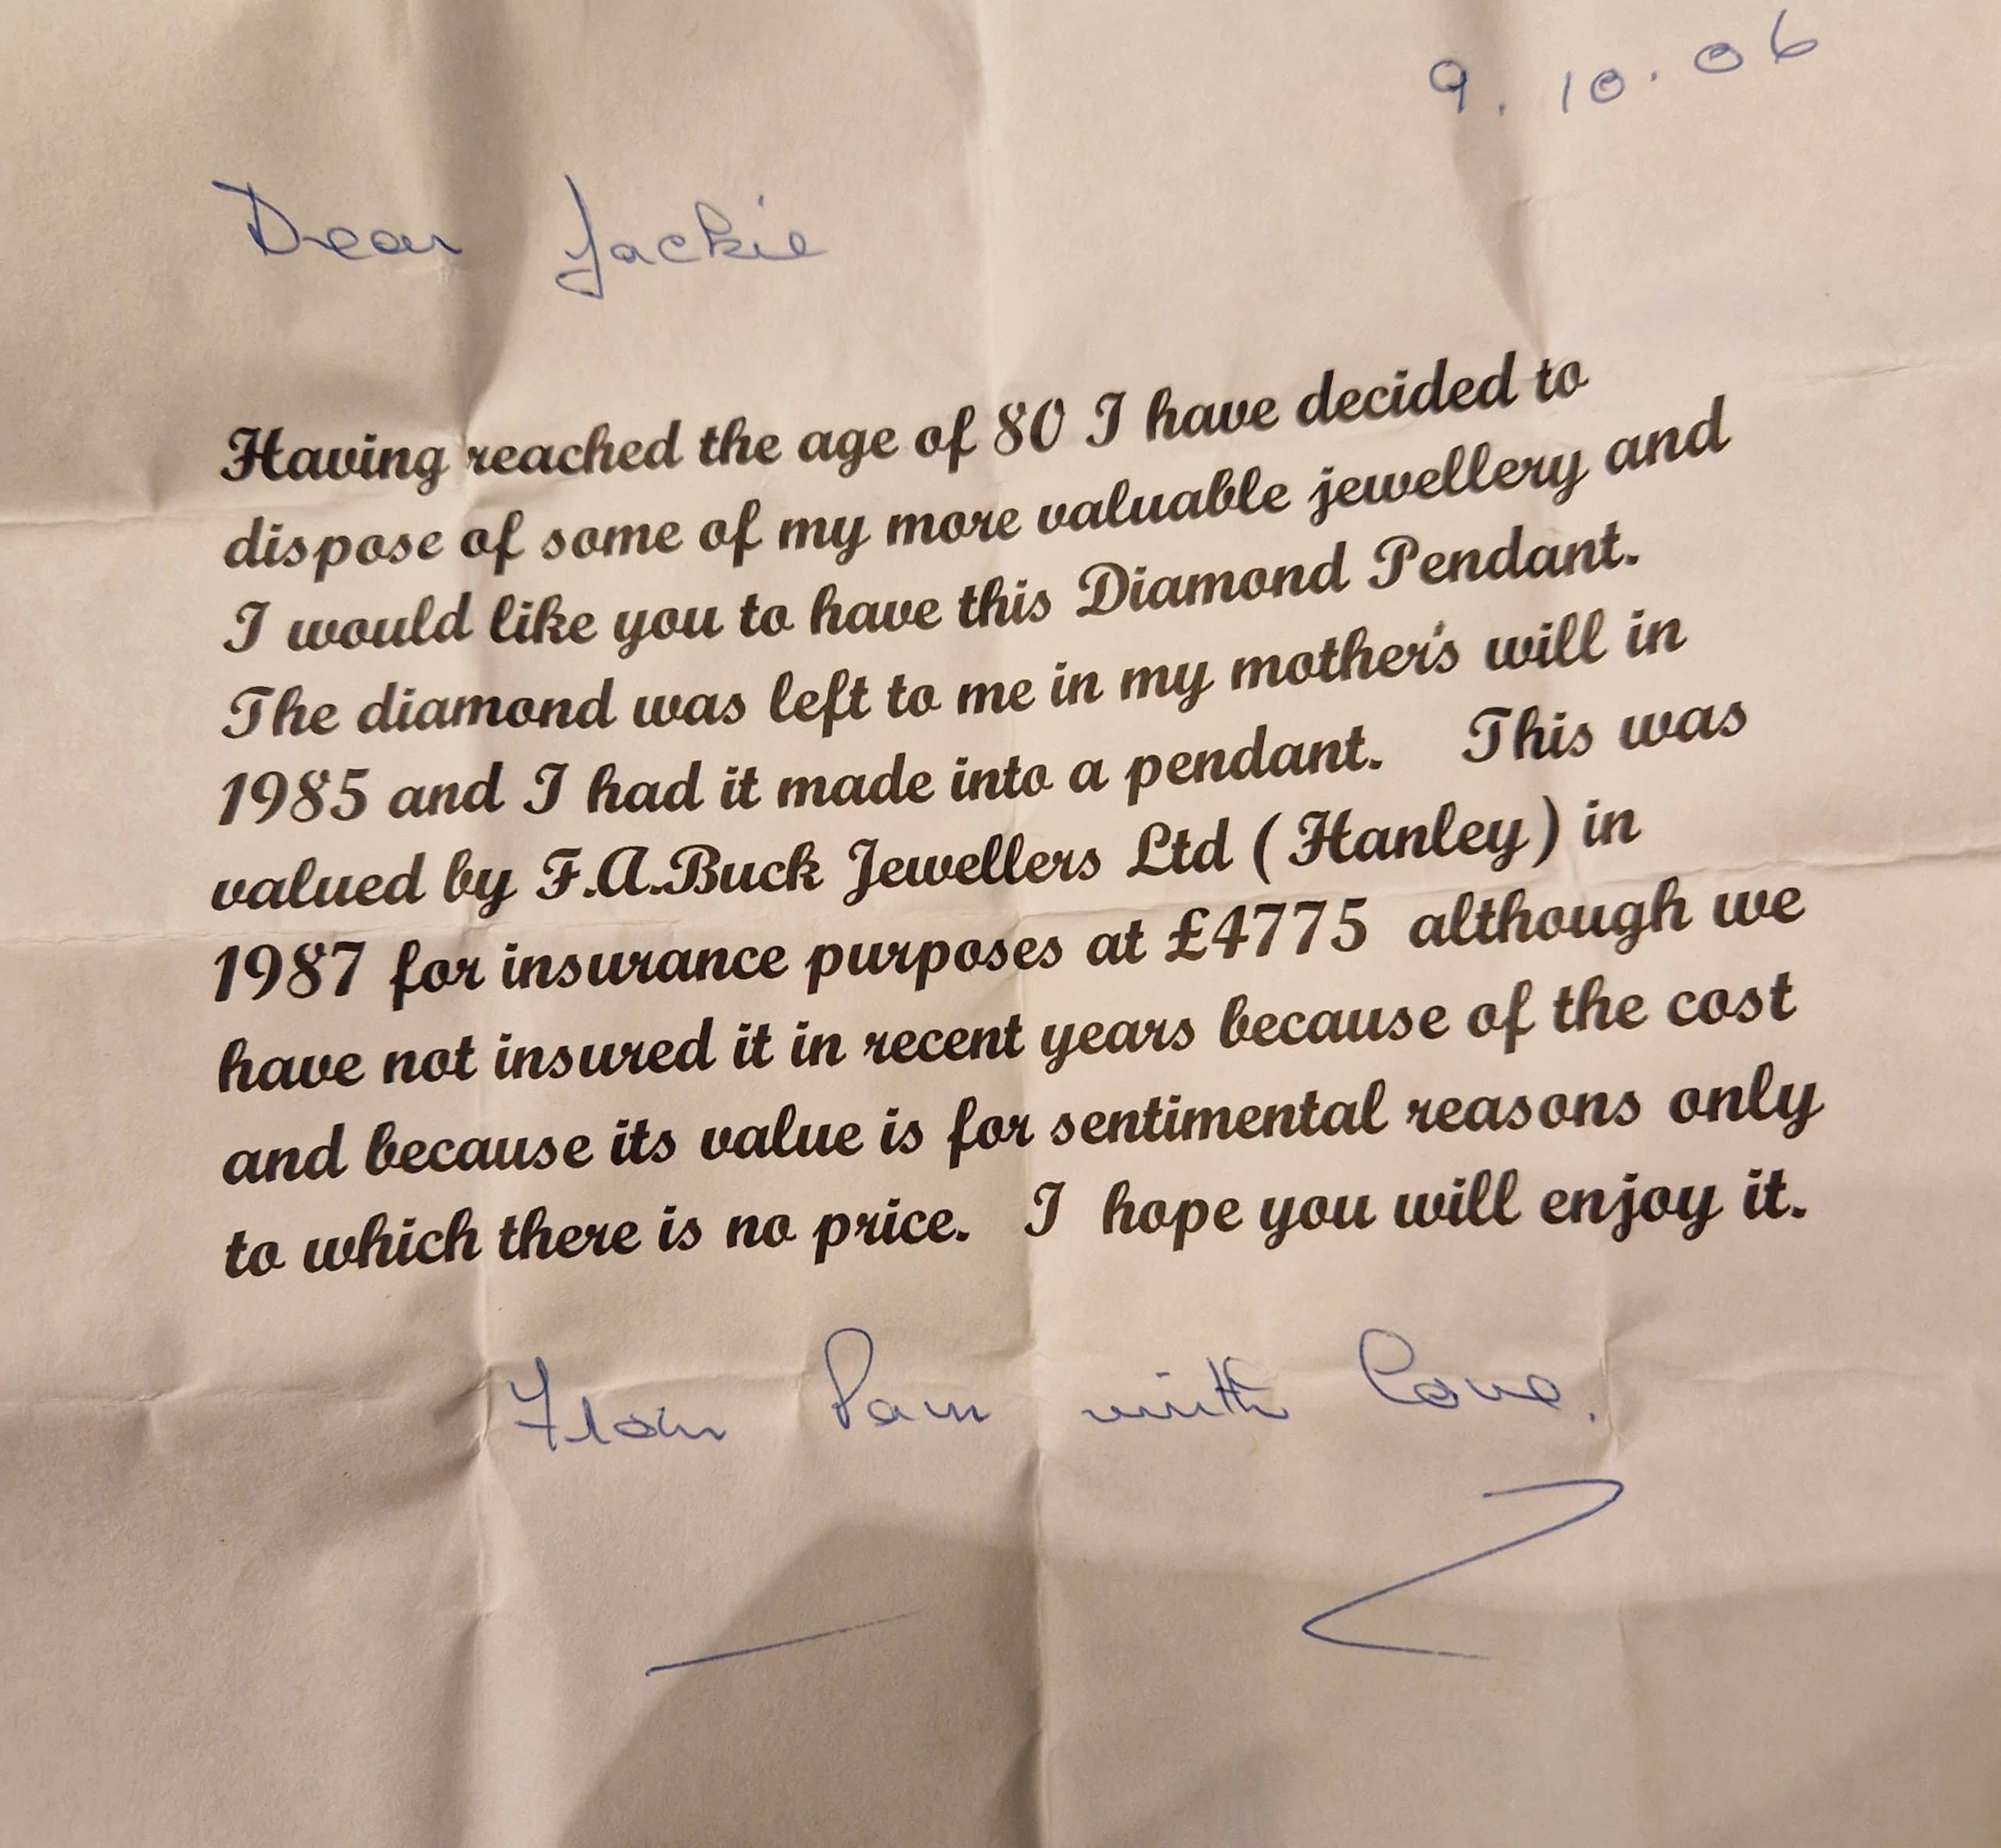 9.10.06
Dear Jackie
Having reached the age of 80 I have decided to
dispose of some of my more valuable jewellery and
I would like you to have this Diamond Pendant.
The diamond was left to me in my mother's will in
1985 and I had it made into a pendant. This was
valued by F.A.Buck Jewellers Ltd (Hanley) in
1987 for insurance purposes at £4775 although we
have not insured it in recent years because of the cost
and because its value is for sentimental reasons only
to which there is no price. I hope you will enjoy it.
From Pam with Love.